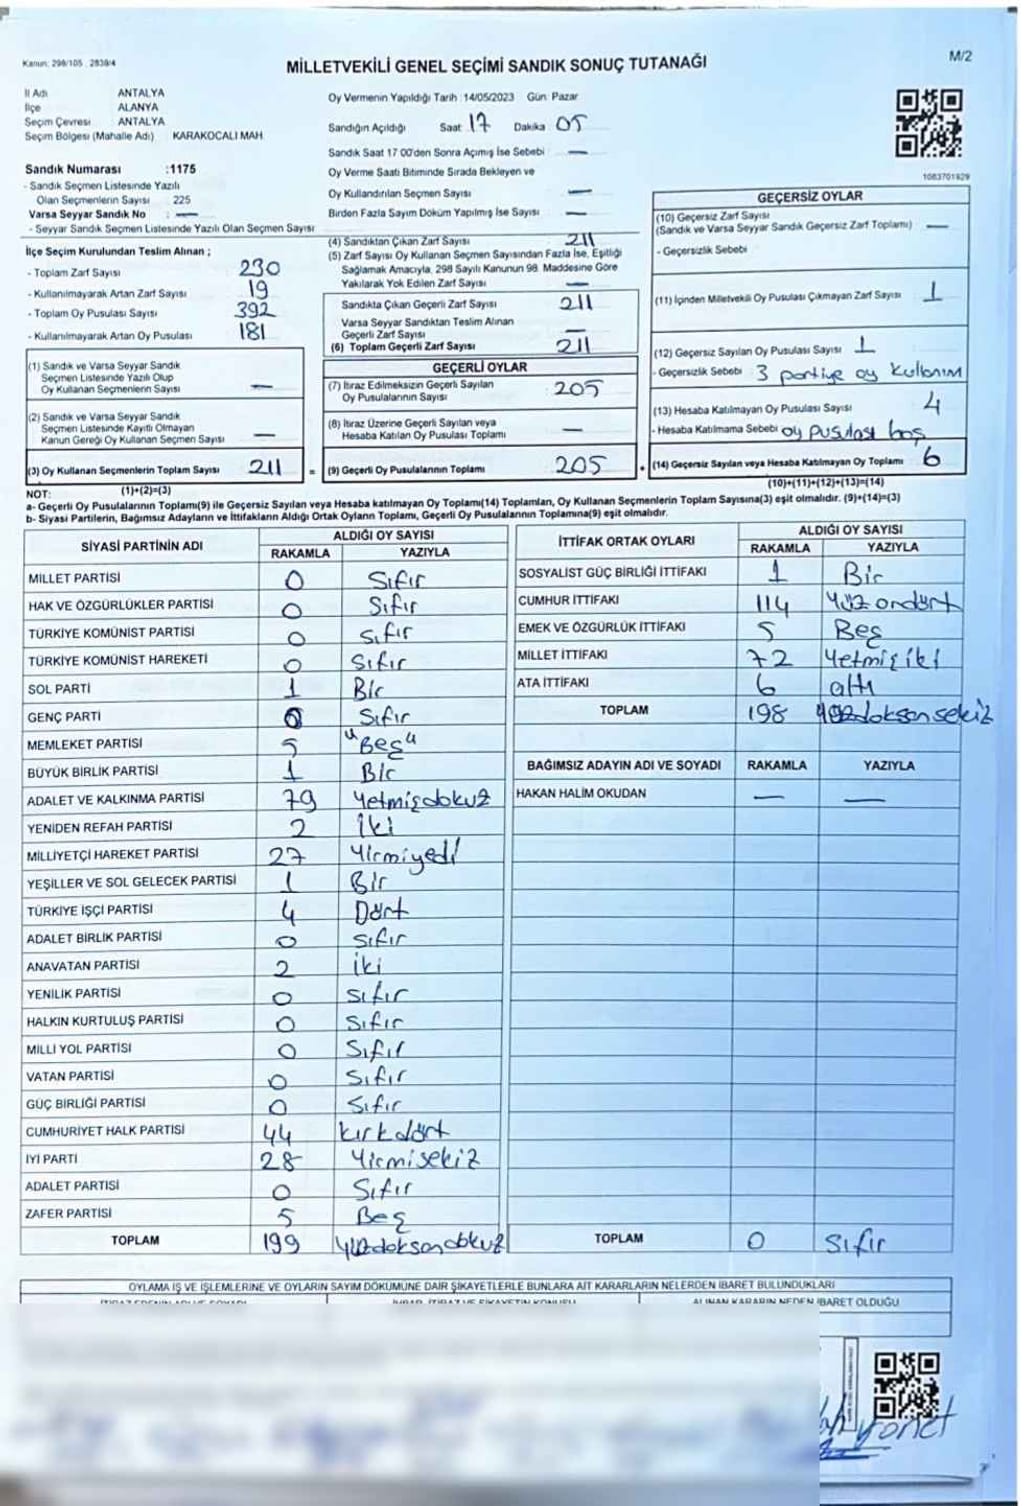 Kanun: 298/105 , 2839/4
M/2
MİLLETVEKİLİ GENEL SEÇİMİ SANDIK SONUÇ TUTANAĞI
İl Adı ANTALYA
İlçe ALANYA
Seçim Çevresi ANTALYA
Seçim Bölgesi (Mahalle Adı) KARAKOCALI MAH.
Sandık Numarası :1175
- Sandık Seçmen Listesinde Yazılı
Olan Seçmenlerin Sayısı 225
Varsa Seyyar Sandık No : —
- Seyyar Sandık Seçmen Listesinde Yazılı Olan Seçmen Sayısı
Oy Vermenin Yapıldığı Tarih :14/05/2023 Gün: Pazar
Sandığın Açıldığı Saat 17 Dakika 05
Sandık Saat 17 00'den Sonra Açımış İse Sebebi —
Oy Verme Saati Bitiminde Sırada Bekleyen ve
Oy Kullandırılan Seçmen Sayısı —
Birden Fazla Sayım Döküm Yapılmış İse Sayısı —
1083701929
İlçe Seçim Kurulundan Teslim Alınan ;
- Toplam Zarf Sayısı 230
- Kullanılmayarak Artan Zarf Sayısı 19
- Toplam Oy Pusulası Sayısı 392
- Kullanılmayarak Artan Oy Pusulası 181
(1) Sandık ve Varsa Seyyar Sandık
Seçmen Listesinde Yazılı Olup
Oy Kullanan Seçmenlerin Sayısı —
(2) Sandık ve Varsa Seyyar Sandık
Seçmen Listesinde Kayıtlı Olmayan
Kanun Gereği Oy Kullanan Seçmen Sayısı —
(3) Oy Kullanan Seçmenlerin Toplam Sayısı 211 =
(1)+(2)=(3)
(4) Sandıktan Çıkan Zarf Sayısı 211
(5) Zarf Sayısı Oy Kullanan Seçmen Sayısından Fazla İse, Eşitliği
Sağlamak Amacıyla, 298 Sayılı Kanunun 98. Maddesine Göre
Yakılarak Yok Edilen Zarf Sayısı —
Sandıkta Çıkan Geçerli Zarf Sayısı 211
Varsa Seyyar Sandıktan Teslim Alınan
Geçerli Zarf Sayısı —
(6) Toplam Geçerli Zarf Sayısı 211
GEÇERLİ OYLAR
(7) İtiraz Edilmeksizin Geçerli Sayılan
Oy Pusulalarının Sayısı 205
(8) İtiraz Üzerine Geçerli Sayılan veya
Hesaba Katılan Oy Pusulası Toplamı —
(9) Geçerli Oy Pusulalarının Toplamı 205 +
GEÇERSİZ OYLAR
(10) Geçersiz Zarf Sayısı
(Sandık ve Varsa Seyyar Sandık Geçersiz Zarf Toplamı) —
- Geçersizlik Sebebi
(11) İçinden Milletvekili Oy Pusulası Çıkmayan Zarf Sayısı 1
(12) Geçersiz Sayılan Oy Pusulası Sayısı 1
- Geçersizlik Sebebi 3 partiye oy kullanım
(13) Hesaba Katılmayan Oy Pusulası Sayısı 4
- Hesaba Katılmama Sebebi oy pusulası boş
(14) Geçersiz Sayılan veya Hesaba Katılmayan Oy Toplamı 6
(10)+(11)+(12)+(13)=(14)
NOT:
a- Geçerli Oy Pusulalarının Toplamı(9) ile Geçersiz Sayılan veya Hesaba katılmayan Oy Toplamı(14) Toplamları, Oy Kullanan Seçmenlerin Toplam Sayısına(3) eşit olmalıdır. (9)+(14)=(3)
b- Siyasi Partilerin, Bağımsız Adayların ve İttifakların Aldığı Ortak Oyların Toplamı, Geçerli Oy Pusulalarının Toplamına(9) eşit olmalıdır.
SİYASİ PARTİNİN ADI ALDIĞI OY SAYISI
RAKAMLA YAZIYLA
MİLLET PARTİSİ 0 Sıfır
HAK VE ÖZGÜRLÜKLER PARTİSİ 0 Sıfır
TÜRKİYE KOMÜNİST PARTİSİ 0 Sıfır
TÜRKİYE KOMÜNİST HAREKETİ 0 Sıfır
SOL PARTİ 1 Bir
GENÇ PARTİ 0 Sıfır
MEMLEKET PARTİSİ 5 "Beş"
BÜYÜK BİRLİK PARTİSİ 1 Bir
ADALET VE KALKINMA PARTİSİ 79 Yetmişdokuz
YENİDEN REFAH PARTİSİ 2 İki
MİLLİYETÇİ HAREKET PARTİSİ 27 Yirmiyedi
YEŞİLLER VE SOL GELECEK PARTİSİ 1 Bir
TÜRKİYE İŞÇİ PARTİSİ 4 Dört
ADALET BİRLİK PARTİSİ 0 Sıfır
ANAVATAN PARTİSİ 2 İki
YENİLİK PARTİSİ 0 Sıfır
HALKIN KURTULUŞ PARTİSİ 0 Sıfır
MİLLİ YOL PARTİSİ 0 Sıfır
VATAN PARTİSİ 0 Sıfır
GÜÇ BİRLİĞİ PARTİSİ 0 Sıfır
CUMHURİYET HALK PARTİSİ 44 Kırkdört
İYİ PARTİ 28 Yirmisekiz
ADALET PARTİSİ 0 Sıfır
ZAFER PARTİSİ 5 Beş
TOPLAM 199 Yüzdoksandokuz
İTTİFAK ORTAK OYLARI ALDIĞI OY SAYISI
RAKAMLA YAZIYLA
SOSYALİST GÜÇ BİRLİĞİ İTTİFAKI 1 Bir
CUMHUR İTTİFAKI 114 Yüz ondört
EMEK VE ÖZGÜRLÜK İTTİFAKI 5 Beş
MİLLET İTTİFAKI 72 Yetmişiki
ATA İTTİFAKI 6 altı
TOPLAM 198 Yüzdoksansekiz
BAĞIMSIZ ADAYIN ADI VE SOYADI RAKAMLA YAZIYLA
HAKAN HALİM OKUDAN — —
TOPLAM 0 Sıfır
OYLAMA İŞ VE İŞLEMLERİNE VE OYLARIN SAYIM DÖKÜMÜNE DAİR ŞİKAYETLERLE BUNLARA AİT KARARLARIN NELERDEN İBARET BULUNDUKLARI
ALINAN KARARIN NEDEN İBARET OLDUĞU